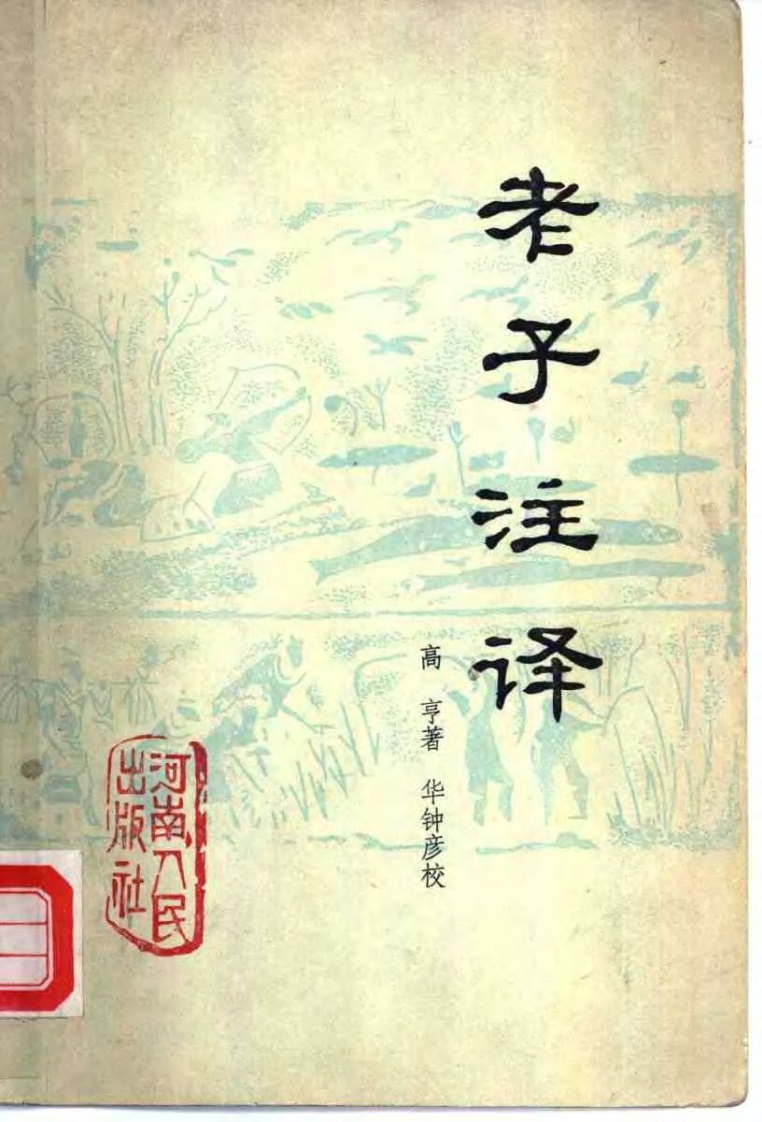 老子注译
高亨著 华钟彦校
河南人民
出版社